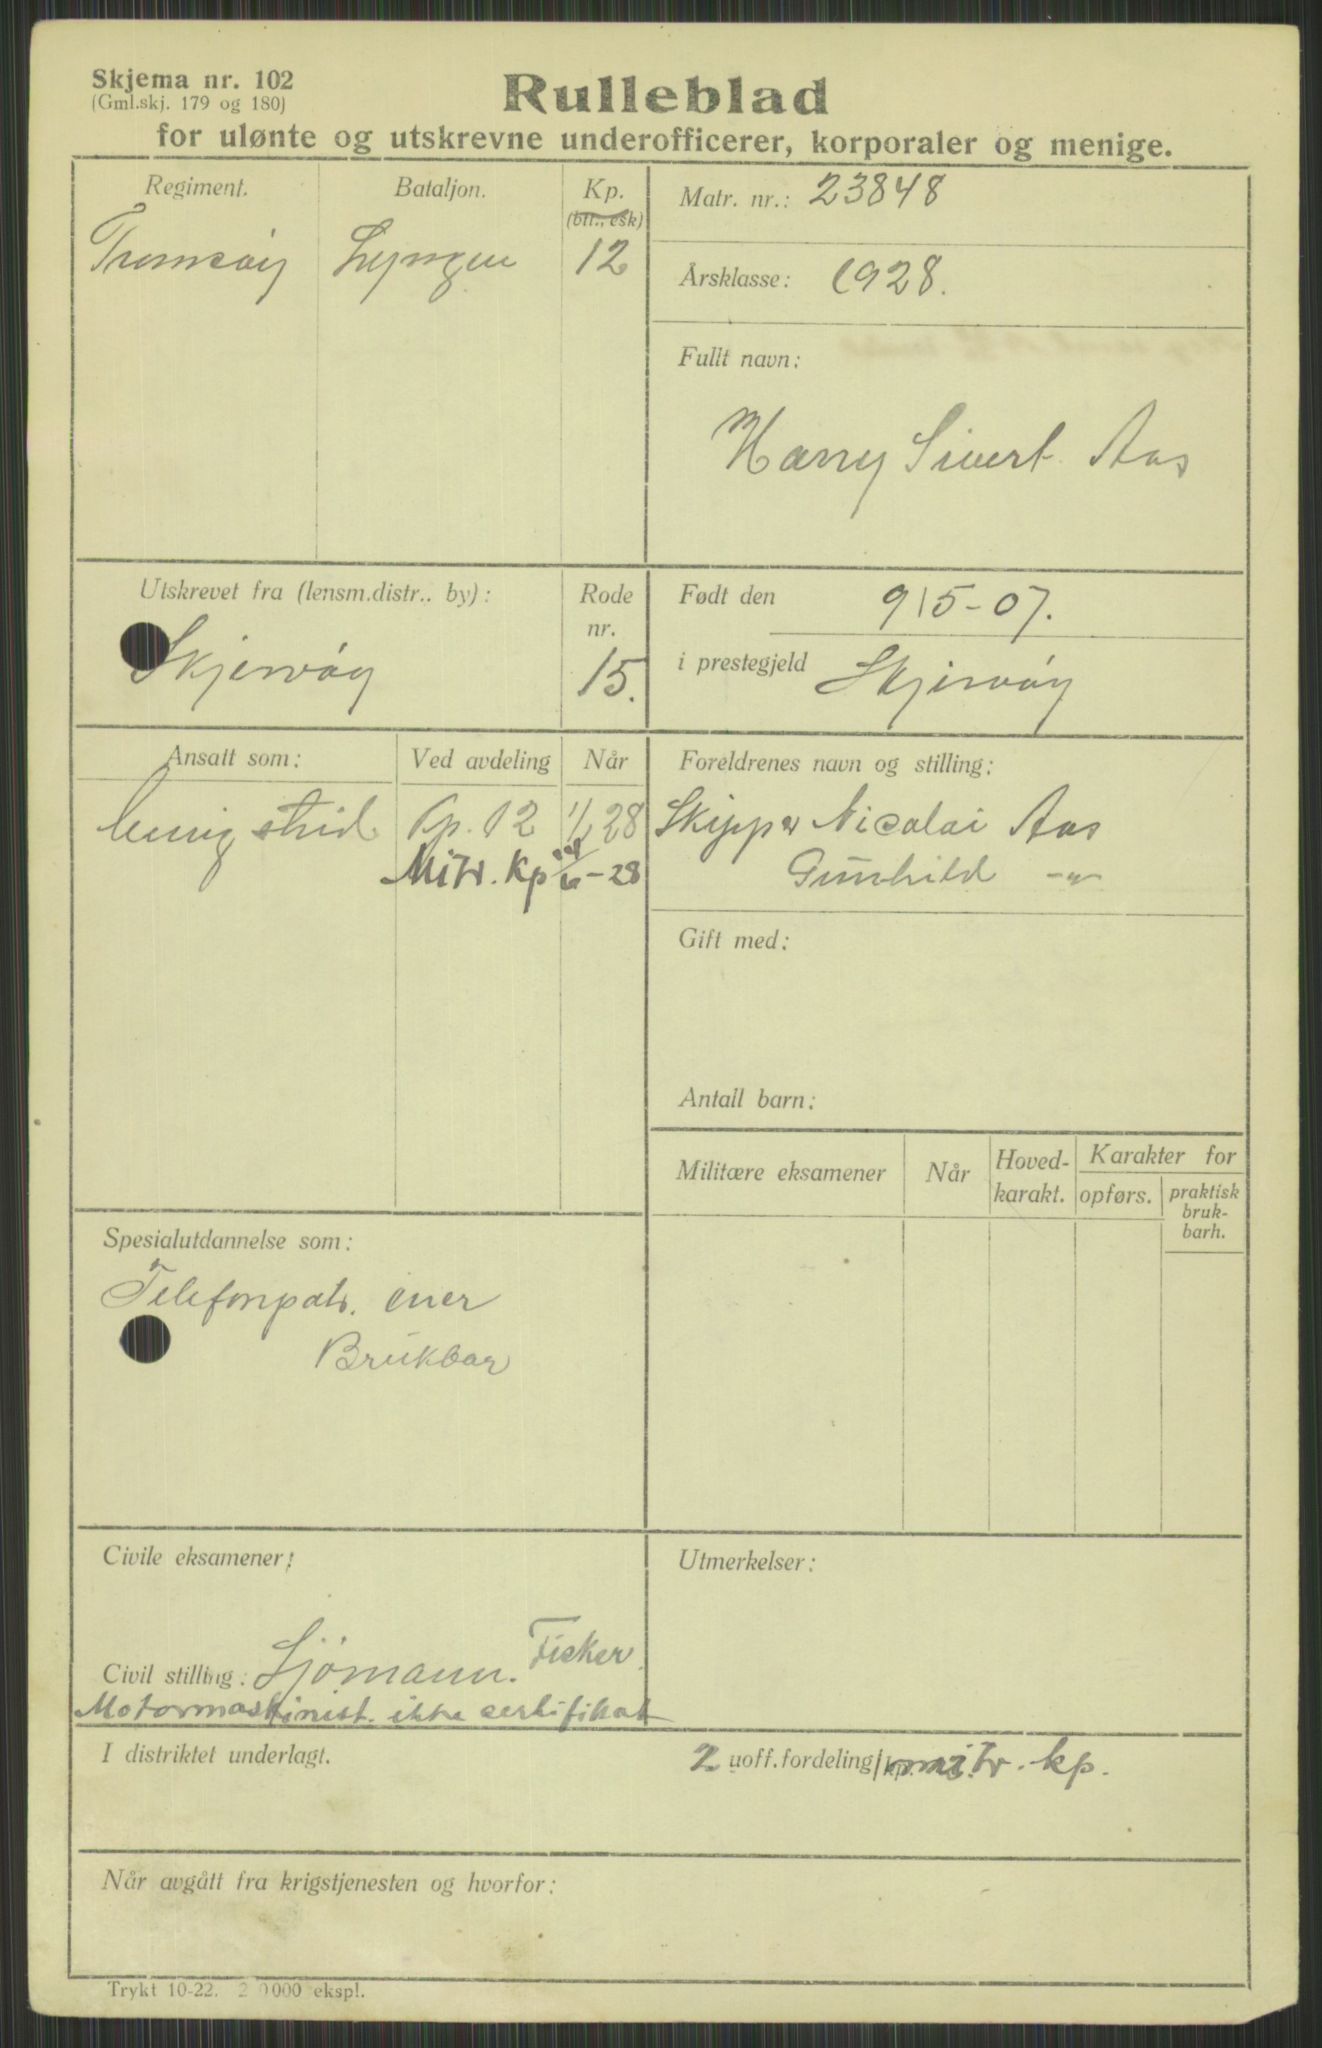 Skjema nr. 102
(Gml.skj. 179 og 180)
Rulleblad
for ulønte og utskrevne underofficerer, korporaler og menige.
Regiment.
Tromsøy
Bataljon.
Lyngen
Kp.
(btr., esk)
12
Matr. nr.: 23848
Årsklasse: 1928.
Fullt navn:
Harry Sivert Aas
Utskrevet fra (lensm.distr.. by):
Skjervöy
Rode
nr.
15.
Født den 9/5-07.
i prestegjeld Skjervöy
Ansatt som:
Ved avdeling
Når
menig strid Kp. 12 1/1 28
Mitr. Kp -28
Foreldrenes navn og stilling:
Skipper Nicolai Aas
Gunhild -"-
Gift med:
Antall barn:
Militære eksamener
Når
Hoved-
karakt.
Karakter for
opførs.
praktisk
bruk-
barh.
Spesialutdannelse som:
Telefonpatr. ener
Brukbar
Civile eksamener:
Civil stilling: Sjömann. Fisker.
Motormaskinist. ikke sertifikat
Utmerkelser:
I distriktet underlagt.
2 uoff.fordeling/kp. mitr. kp.
Når avgått fra krigstjenesten og hvorfor:
Trykt 10-22. 2 0000 ekspl.